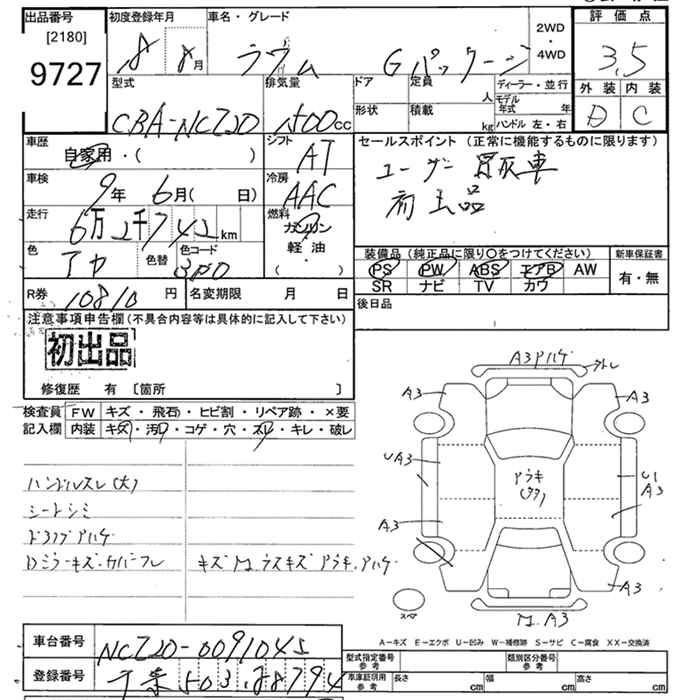 出品番号
[2180]
9727
初度登録年月
8年 8月
車名・グレード
ラウム Gパッケージ
2WD
・
4WD
評価点
3.5
型式
CBA-NCZ20
排気量
1500cc
ドア
定員
人
形状
積載
kg
ディーラー・並行
モデル
年式 年
ハンドル 左・右
外装 内装
D C
車歴
自家用・( )
シフト
AT
車検
9年 6月( 日)
冷房
AAC
走行
6万2千742km
燃料
ガソリン
軽油
( )
色
アカ
色替
色コード
3P0
R券
10810円
名変期限 月 日
セールスポイント (正常に機能するものに限ります)
ユーザー買取車
初出品
装備品(純正品に限り○をつけてください)
新車保証書
PS PW ABS エアB AW
SR ナビ TV カワ
有・無
後日品
注意事項申告欄(不具合内容等は具体的に記入して下さい)
初出品
修復歴 有 〔箇所 〕
検査員 FW キズ・飛石・ヒビ割・リペア跡・×要
記入欄 内装 キズ・汚レ・コゲ・穴・スレ・キレ・破レ
ハンドルスレ(大)
シートシミ
ドラブアハゲ
Dミラーキズ・カバーフレ
キズM ウスキズ アラキ・アハゲ
A3アハゲ
A3
A3
UA3
U1
A3
アラキ
A3
A3
M.A3
スペ
A-キズ E-エクボ U-凹み W-補修跡 S-サビ C-腐食 XX-交換済
車台番号
NCZ20-0091045
登録番号
千葉503
型式指定番号
参考
類別区分番号
参考
車庫証明用
参考
長さ cm
幅 cm
高さ cm